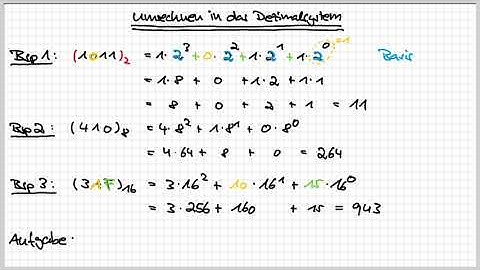 Umrechnen in das Dezimalsystem
Bsp 1: (1011)₂ = 1·2³ + 0·2² + 1·2¹ + 1·2⁰ =1 Basis
= 1·8 + 0 + 1·2 + 1·1
= 8 + 0 + 2 + 1 = 11
Bsp 2: (410)₈ = 4·8² + 1·8¹ + 0·8⁰
= 4·64 + 8 + 0 = 264
Bsp 3: (3AF)₁₆ = 3·16² + 10·16¹ + 15·16⁰
= 3·256 + 160 + 15 = 943
Aufgabe: